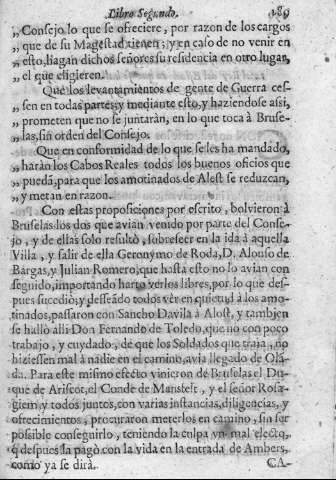 Libro Segundo. 189
„ Consejo lo que se ofreciere, por razon de los cargos
„ que de su Magestad tienen; y en caso de no venir en
„ esto, hagan dichos señores su residencia en otro lugar,
„ el que eligieren.
Que los levantamientos de gente de Guerra ces-
„ sen en todas partes; y mediante esto, y haziendose assi,
„ prometen que no se juntaràn, en lo que toca à Bruse-
„ las, sin orden del Consejo.
Que en conformidad de lo que se les ha mandado,
„ haràn los Cabos Reales todos los buenos oficios que
„ puedã, para que los amotinados de Alost se reduzcan,
„ y metan en razon.
Con estas proposiciones por escrito, bolvieron à
Bruselas los dos que avian venido por parte del Conse-
jo, y de ellas solo resultò, subreseer en la ida à aquella
Villa, y salir de ella Geronymo de Roda, D. Alonso de
Bargas, y Julian Romero, que hasta esto no lo avian con
seguido, importando harto verlos libres, por lo que des-
pues sucediò; y desseãdo todos vèr en quietud à los amo-
tinados, passaron con Sancho Davila à Alost, y tambien
se hallò alli Don Fernando de Toledo, que no con poco
trabajo, y cuydado, de que los Soldados que traìa, no
hiziessen mal à nadie en el camino, avia llegado de Olã-
da. Para este mismo efecto vinieron de Bruselas el Du-
que de Ariscot, el Conde de Mansfelt, y el señor Rosa-
giem y todos juntos, con varias instancias, diligencias, y
ofrecimientos, procuraron meterlos en camino, sin ser
possible conseguirlo, teniendo la culpa vn mal electo,
q̃ despues la pagò con la vida en la entrada de Ambers,
como ya se dirà. CA-